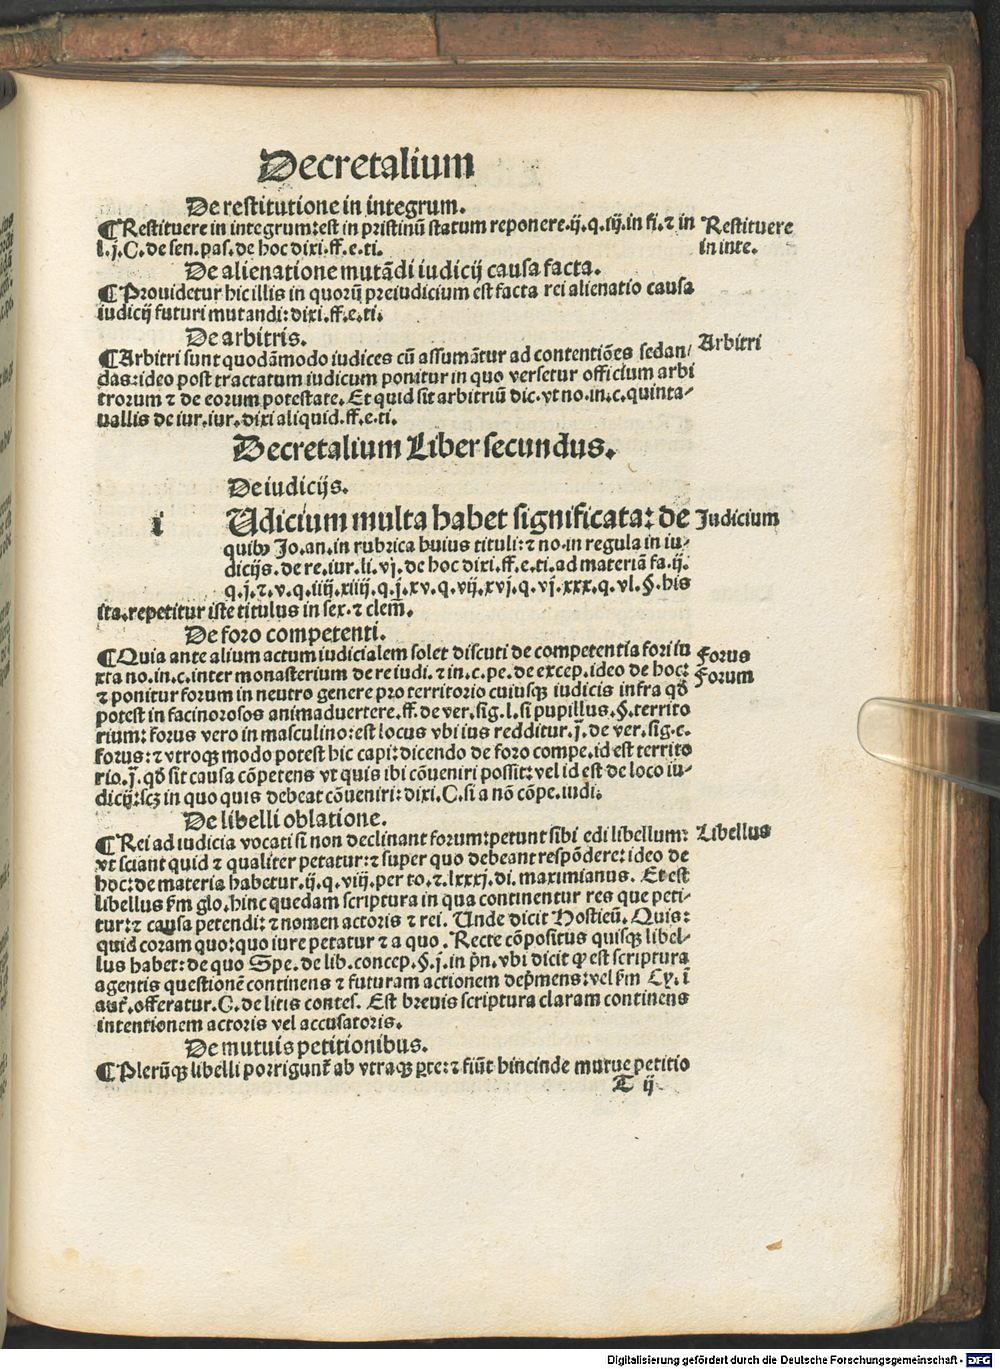 Decretalium
De restitutione in integrum.
¶Restituere in integrum:est in pristinū statum reponere.ij.q.iij.in fi.⁊ in
l.j.C.de sen.pas.de hoc dixi.ff.e.ti.
Restituere
in inte.
De alienatione mutādi iudicij causa facta.
¶Prouidetur hic illis in quorū preiudicium est facta rei alienatio causa
iudicij futuri mutandi:dixi.ff.e.ti.
De arbitris.
¶Arbitri sunt quodāmodo iudices cū assumātur ad contentiōes sedan/
das:ideo post tractatum iudicum ponitur in quo versetur officium arbi
trorum ⁊ de eorum potestate.Et quid sit arbitriū dic.vt no.in.c.quinta-
uallis de iur.iur.dixi aliquid.ff.e.ti.
Arbitri
Decretalium Liber secundus.
De iudicijs.
i Udicium multa habet significata: de
quibꝰ Jo.an.in rubrica huius tituli:⁊ no.in regula in iu-
dicijs.de re.iur.li.vj.de hoc dixi.ff.e.ti.ad materiā fa.ij.
q.j.⁊.v.q.iiij.xiiij.q.j.xv.q.vij.xvj.q.vj.xxx.q.vl.§.his
ita.repetitur iste titulus in sex.⁊ clem̄.
Judicium
De foro competenti.
¶Quia ante alium actum iudicialem solet discuti de competentia fori iu
xta no.in.c.inter monasterium de re iudi.⁊ in.c.pe.de excep.ideo de hoc:
⁊ ponitur forum in neutro genere pro territorio cuiusqꝫ iudicis infra qđ
potest in facinorosos animaduertere.ff.de ver.sig.l.si pupillus.§.territo
rium:forus vero in masculino:est locus vbi ius redditur.j̄.de ver.sig.c.
forus:⁊ vtroqꝫ modo potest hic capi:dicendo de foro compe.id est territo
rio.j̄.qđ sit causa cōpetens vt quis ibi cōueniri possit:vel id est de loco iu-
dicij:scꝫ in quo quis debeat cōueniri:dixi.C.si a nō cōpe.iudi.
Forus
Forum
De libelli oblatione.
¶Rei ad iudicia vocati si non declinant forum:petunt sibi edi libellum:
vt sciant quid ⁊ qualiter petatur:⁊ super quo debeant respōdere:ideo de
hoc:de materia habetur.ij.q.viij.per to.⁊.lxxxj.di.maximianus. Et est
libellus ẜm glo.hinc quedam scriptura in qua continentur res que peti-
tur:⁊ causa petendi:⁊ nomen actoris ⁊ rei. Unde dicit Hosticū.Quis:
quid coram quo:quo iure petatur ⁊ a quo.Recte cōpositus quisqꝫ libel-
lus habet:de quo Spe.de lib.concep.§.j.in pn̄.vbi dicit ꝙ est scriptura
agentis questionē continens ⁊ futuram actionem dep̄mens:vel ẜm Cy.ī
aut̄.offeratur.C.de litis contes. Est breuis scriptura claram continens
intentionem actoris vel accusatoris.
Libellus
De mutuis petitionibus.
¶Plerūqꝫ libelli porrigunt̄ ab vtraqꝫ ꝑte:⁊ fiūt hincinde mutue petitio
T ij
Digitalisierung gefördert durch die Deutsche Forschungsgemeinschaft - DFG